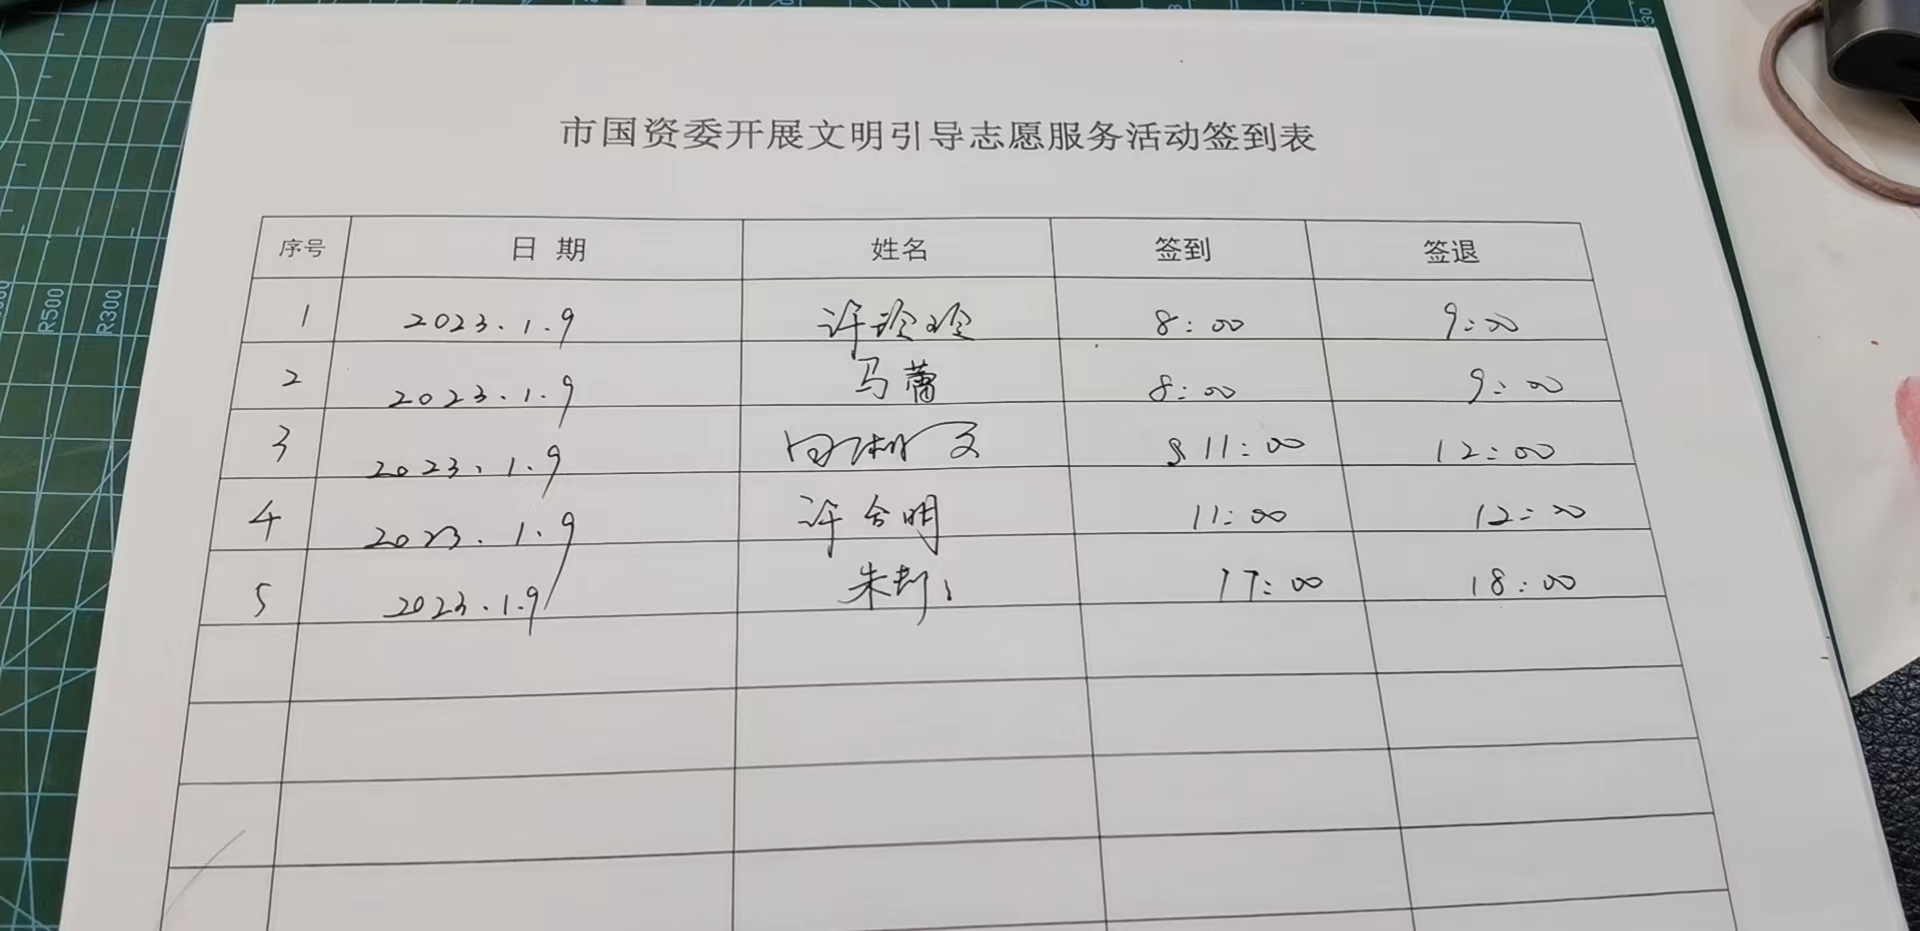 市国资委开展文明引导志愿服务活动签到表
序号 日期 姓名 签到 签退
1 2023.1.9 许玲玲 8:00 9:00
2 2023.1.9 马蕾 8:00 9:00
3 2023.1.9 11:00 12:00
4 2023.1.9 许合明 11:00 12:00
5 2023.1.9 朱 17:00 18:00
R500
R300